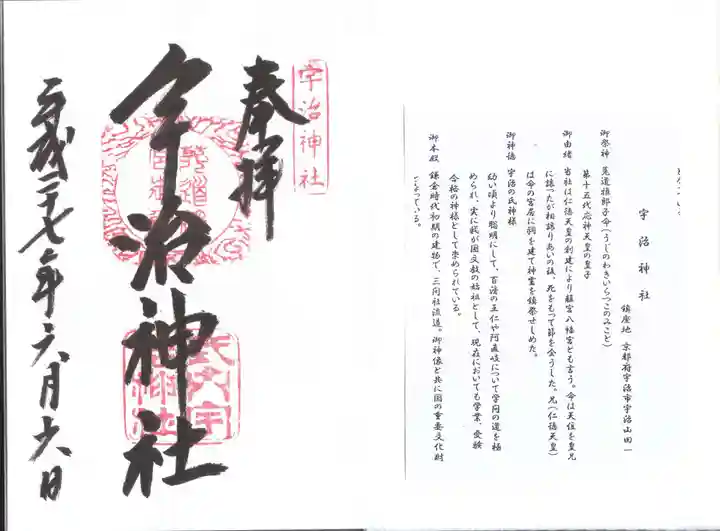 宇治神社
奉拝
宇治神社
平成二十七年六月六日
宇治神社
鎮座地 京都府宇治市宇治山田一
御祭神 菟道稚郎子命(うじのわきいらつこのみこと)
第十五代応神天皇の皇子
御由緒 当社は仁徳天皇の創建により離宮八幡宮とも言う。命は天位を皇兄
に譲ったが相譲りあいの後、死をもって節を全うした。兄(仁徳天皇)
は命の宮居に祠を建て神霊を鎮祭せしめた。
御神徳 宇治の氏神様
幼い頃より聡明にして、百済の王仁や阿直岐について学問の道を極
められ、実に我が国文教の始祖として、現在においても学業、受験
合格の神様として崇められている。
御本殿 鎌倉時代初期の建物で、三間社流造。御神像と共に国の重要文化財
となっている。